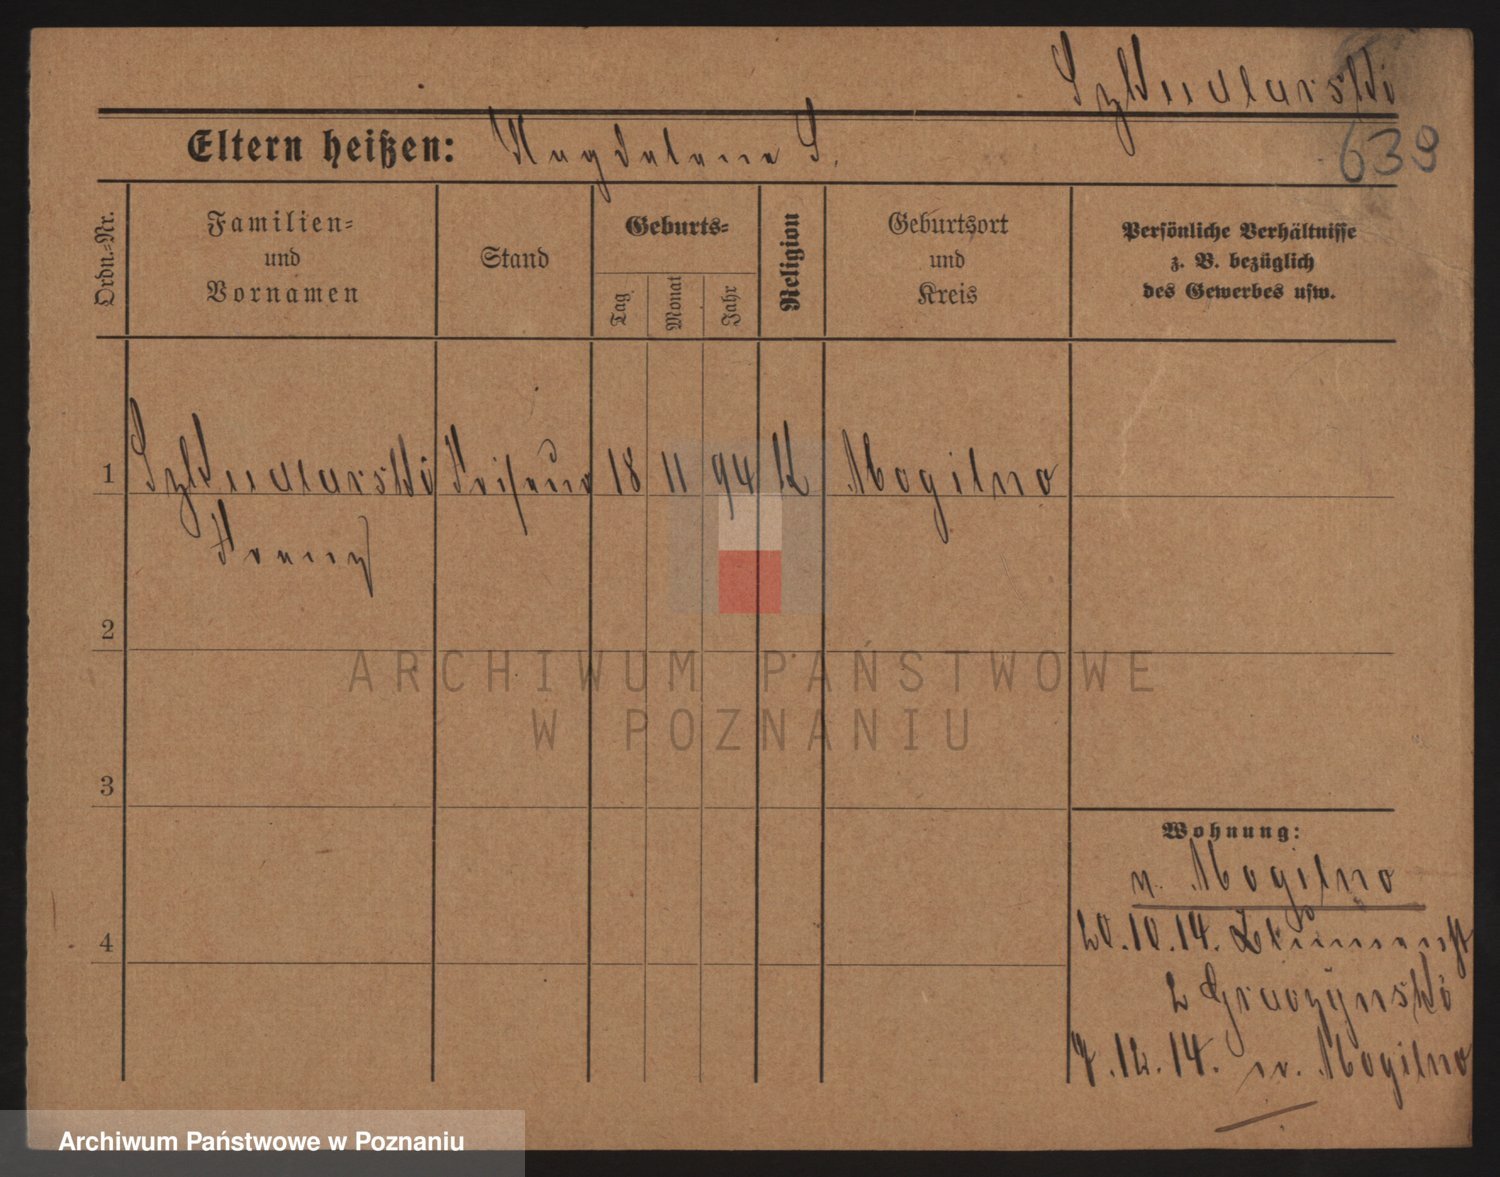 Szkudlarski
639
Eltern heißen: Magdalena S.
Ordn.-Nr.
Familien-
und
Vornamen
Stand
Geburts-
Tag
Monat
Jahr
Religion
Geburtsort
und
Kreis
Persönliche Verhältnisse
z. B. bezüglich
des Gewerbes usw.
1 Szkudlarski Friseur 18 11 94 K Mogilno
Franz
2
3
4
Wohnung:
v. Mogilno
20.10.14.
2 Graczynski
7.12.14. n. Mogilno
ARCHIWUM PAŃSTWOWE
W POZNANIU
Archiwum Państwowe w Poznaniu